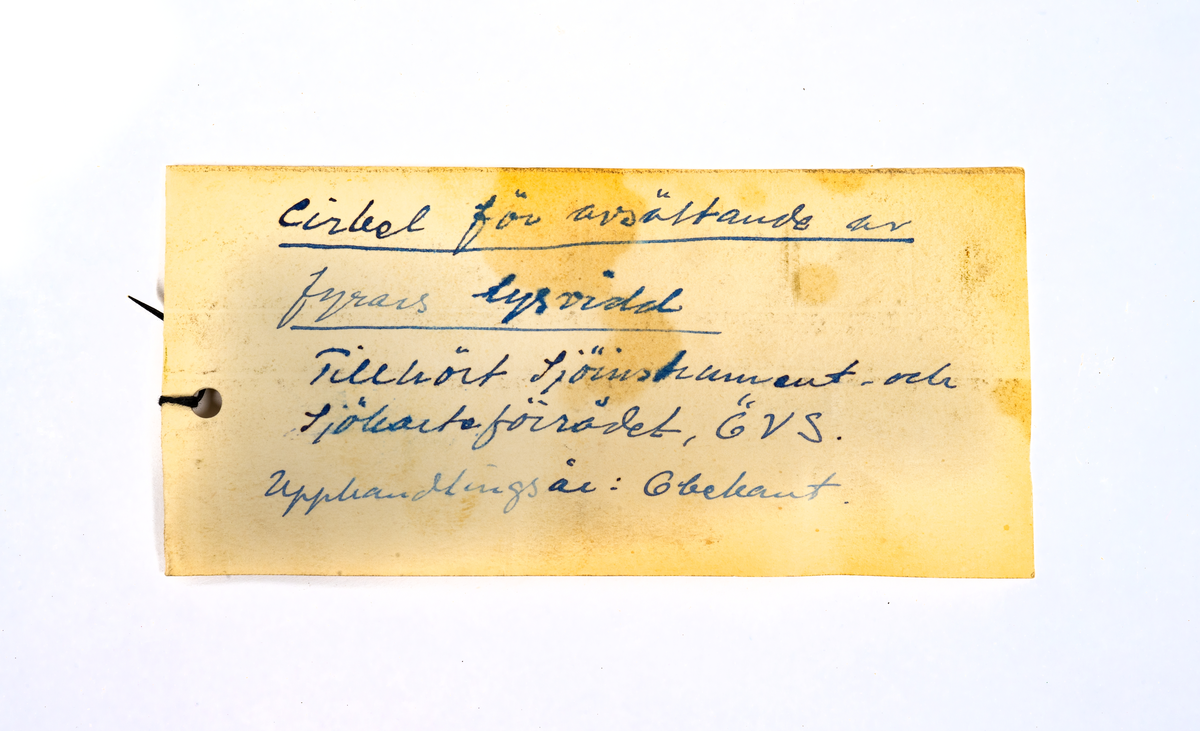 Cirkel för avsättande av
fyrars lysvidd
Tillhört Sjöinstrument- och
Sjökarteförrådet, ÖVS.
Upphandlingsår: Obekant.